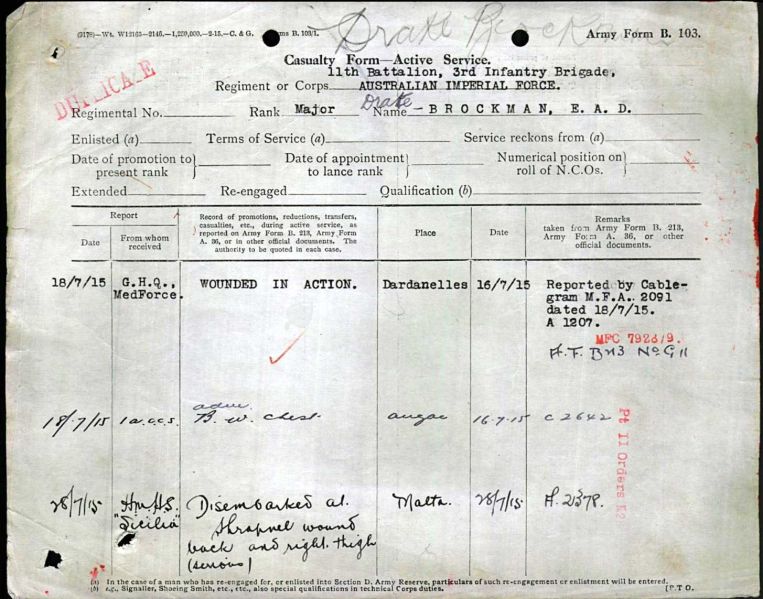 (9178)—Wt. W12165—2146.—1,250,000.—2-15.—C. & G. Forms B. 103/1.
Drake Brockman
Army Form B. 103.
Casualty Form—Active Service.
DUPLICATE
11th Battalion, 3rd Infantry Brigade,
Regiment or Corps AUSTRALIAN IMPERIAL FORCE.
Regimental No. Rank Major Name Drake - BROCKMAN, E. A. D.
Enlisted (a) Terms of Service (a) Service reckons from (a)
Date of promotion to } Date of appointment } Numerical position on }
present rank } to lance rank } roll of N.C.Os. }
Extended Re-engaged Qualification (b)
Report
Date
From whom
received
Record of promotions, reductions, transfers,
casualties, etc., during active service, as
reported on Army Form B. 213, Army Form
A. 36, or in other official documents. The
authority to be quoted in each case.
Place
Date
Remarks
taken from Army Form B. 213,
Army Form A. 36, or other
official documents.
18/7/15 G.H.Q., WOUNDED IN ACTION. Dardanelles 16/7/15 Reported by Cable-
MedForce. gram M.F.A. 2091
dated 18/7/15.
A 1207.
MFC 7923/9.
A.F. B 213 No. G 11
18/7/15 1 a.c.c.s. B. w. chest anzac 16.7.15 C 2642
Pt II Orders K2
28/7/15 Hm H.S. Disembarked at Malta. 28/7/15 A. 21378.
"Sicilia" Shrapnel wound
back and right thigh
(serious)
(a) In the case of a man who has re-engaged for, or enlisted into Section D. Army Reserve, particulars of such re-engagement or enlistment will be entered.
(b) e.g., Signaller, Shoeing Smith, etc., etc., also special qualifications in technical Corps duties. [P.T.O.